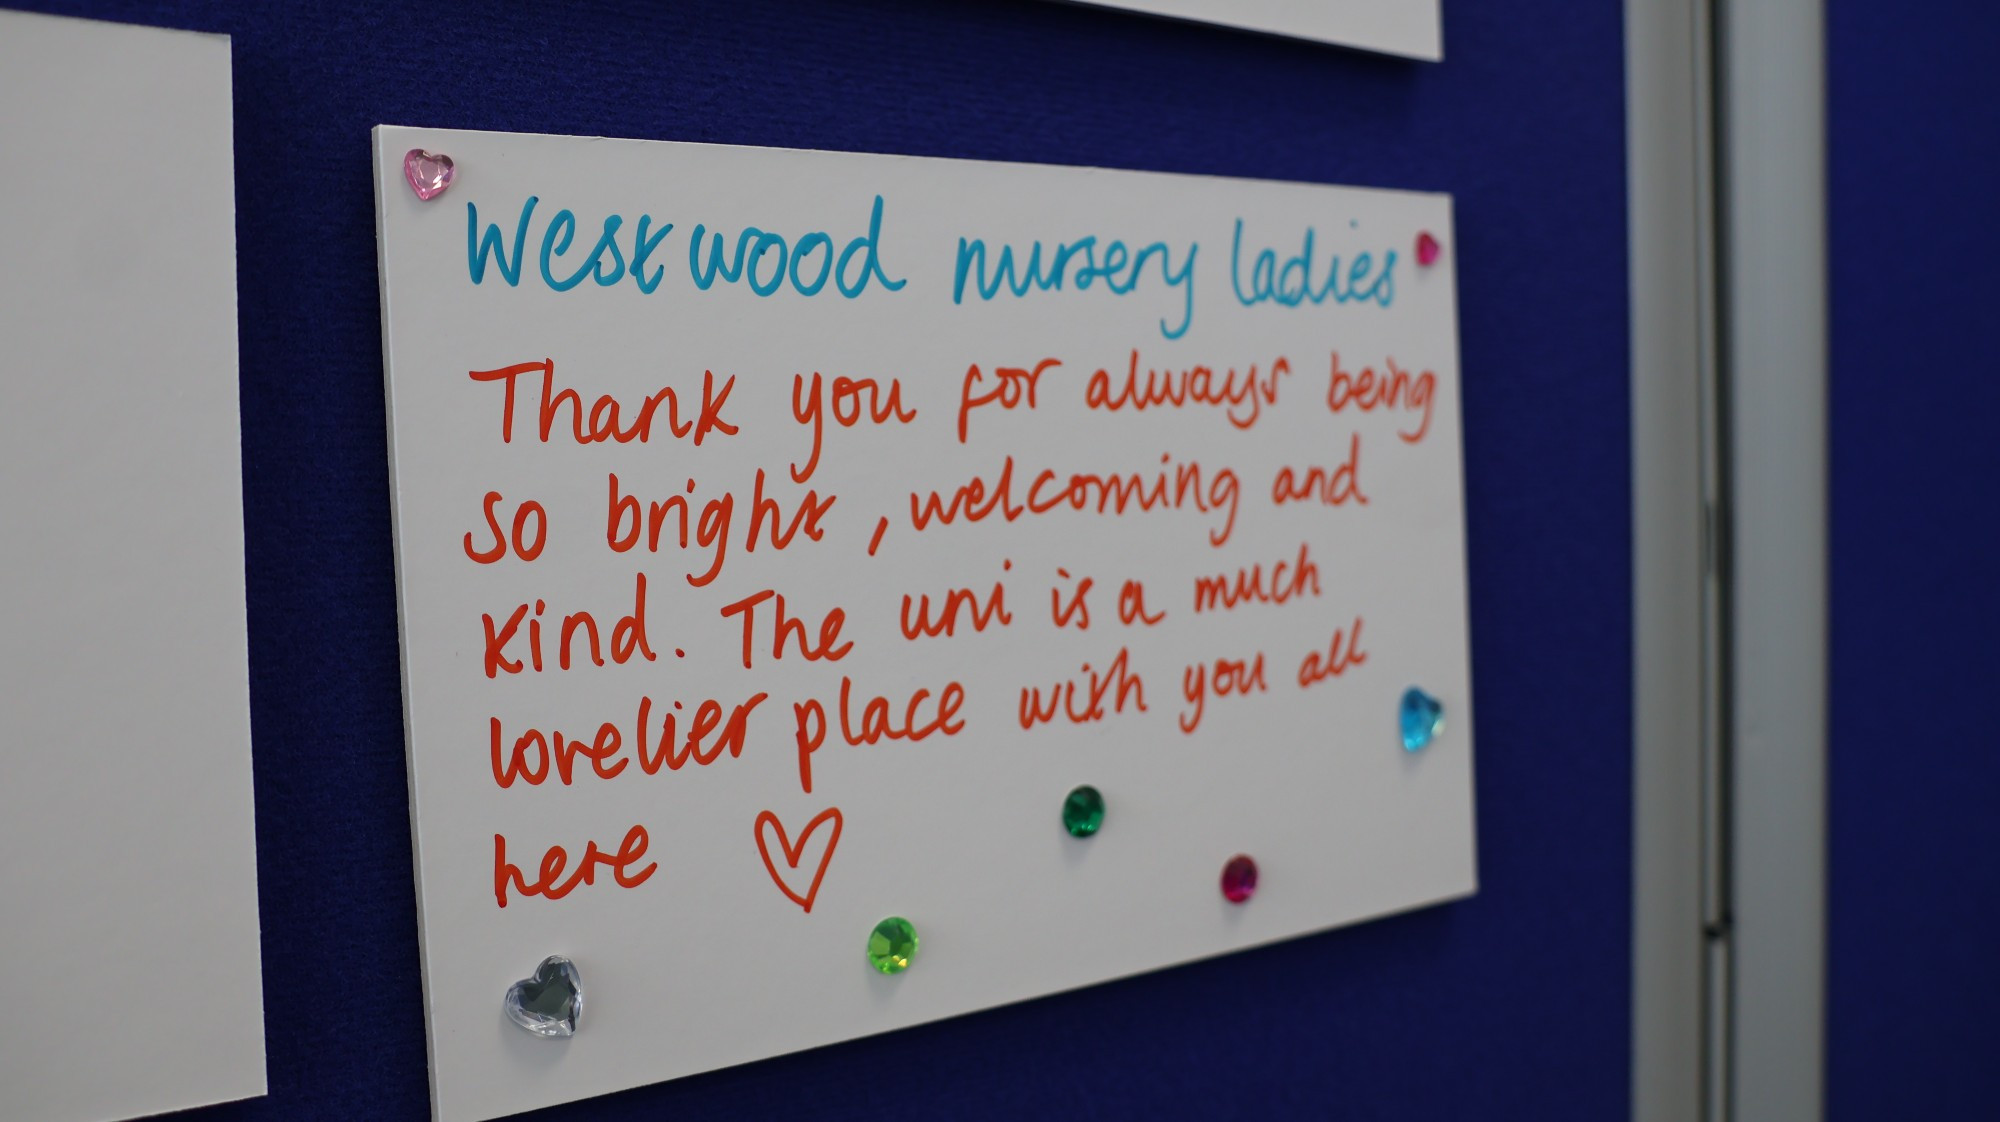 Westwood nursery ladies
Thank you for always being
so bright, welcoming and
kind. The uni is a much
lovelier place with you all
here ♡